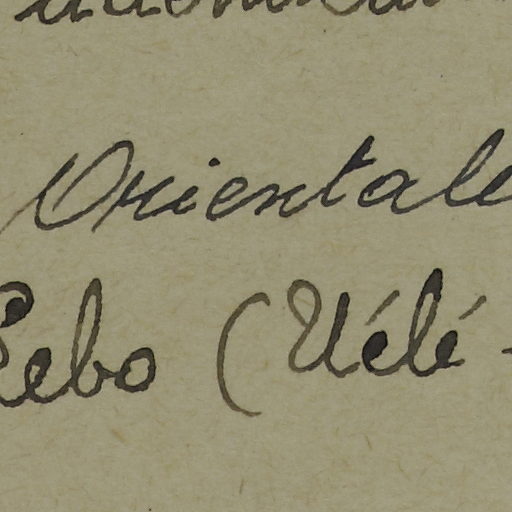 Orientale
Lebo (Uélé -